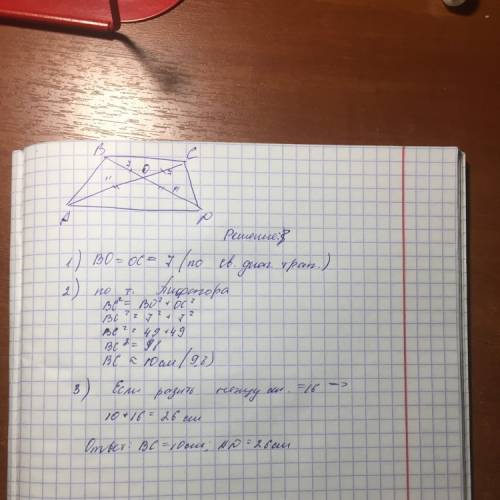 B C
7 O 7
11 11
A D
Решение:
1) BO = OC = 7 (по св. диаг. трап.)
2) по т. Пифагора
BC² = BO² + OC²
BC² = 7² + 7²
BC² = 49 + 49
BC² = 98
BC ≈ 10 см (9,8)
3) Если разниц между = 16 —>
10 + 16 = 26 см
Ответ: BC = 10 см, AD = 26 см